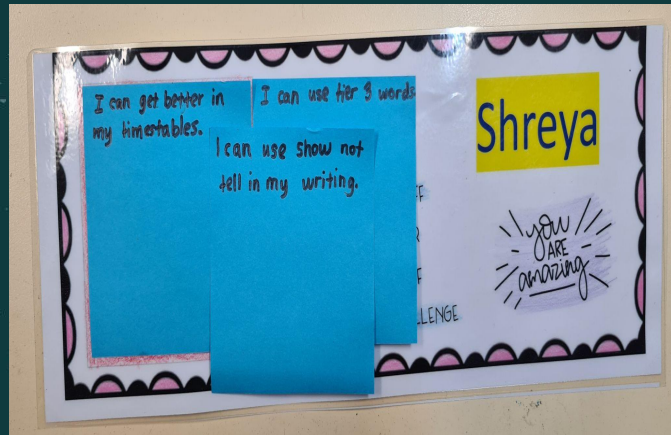 I can get better in
my timestables.
I can use tier 3 words
I can use show not
tell in my writing.
Shreya
you
ARE
amazing